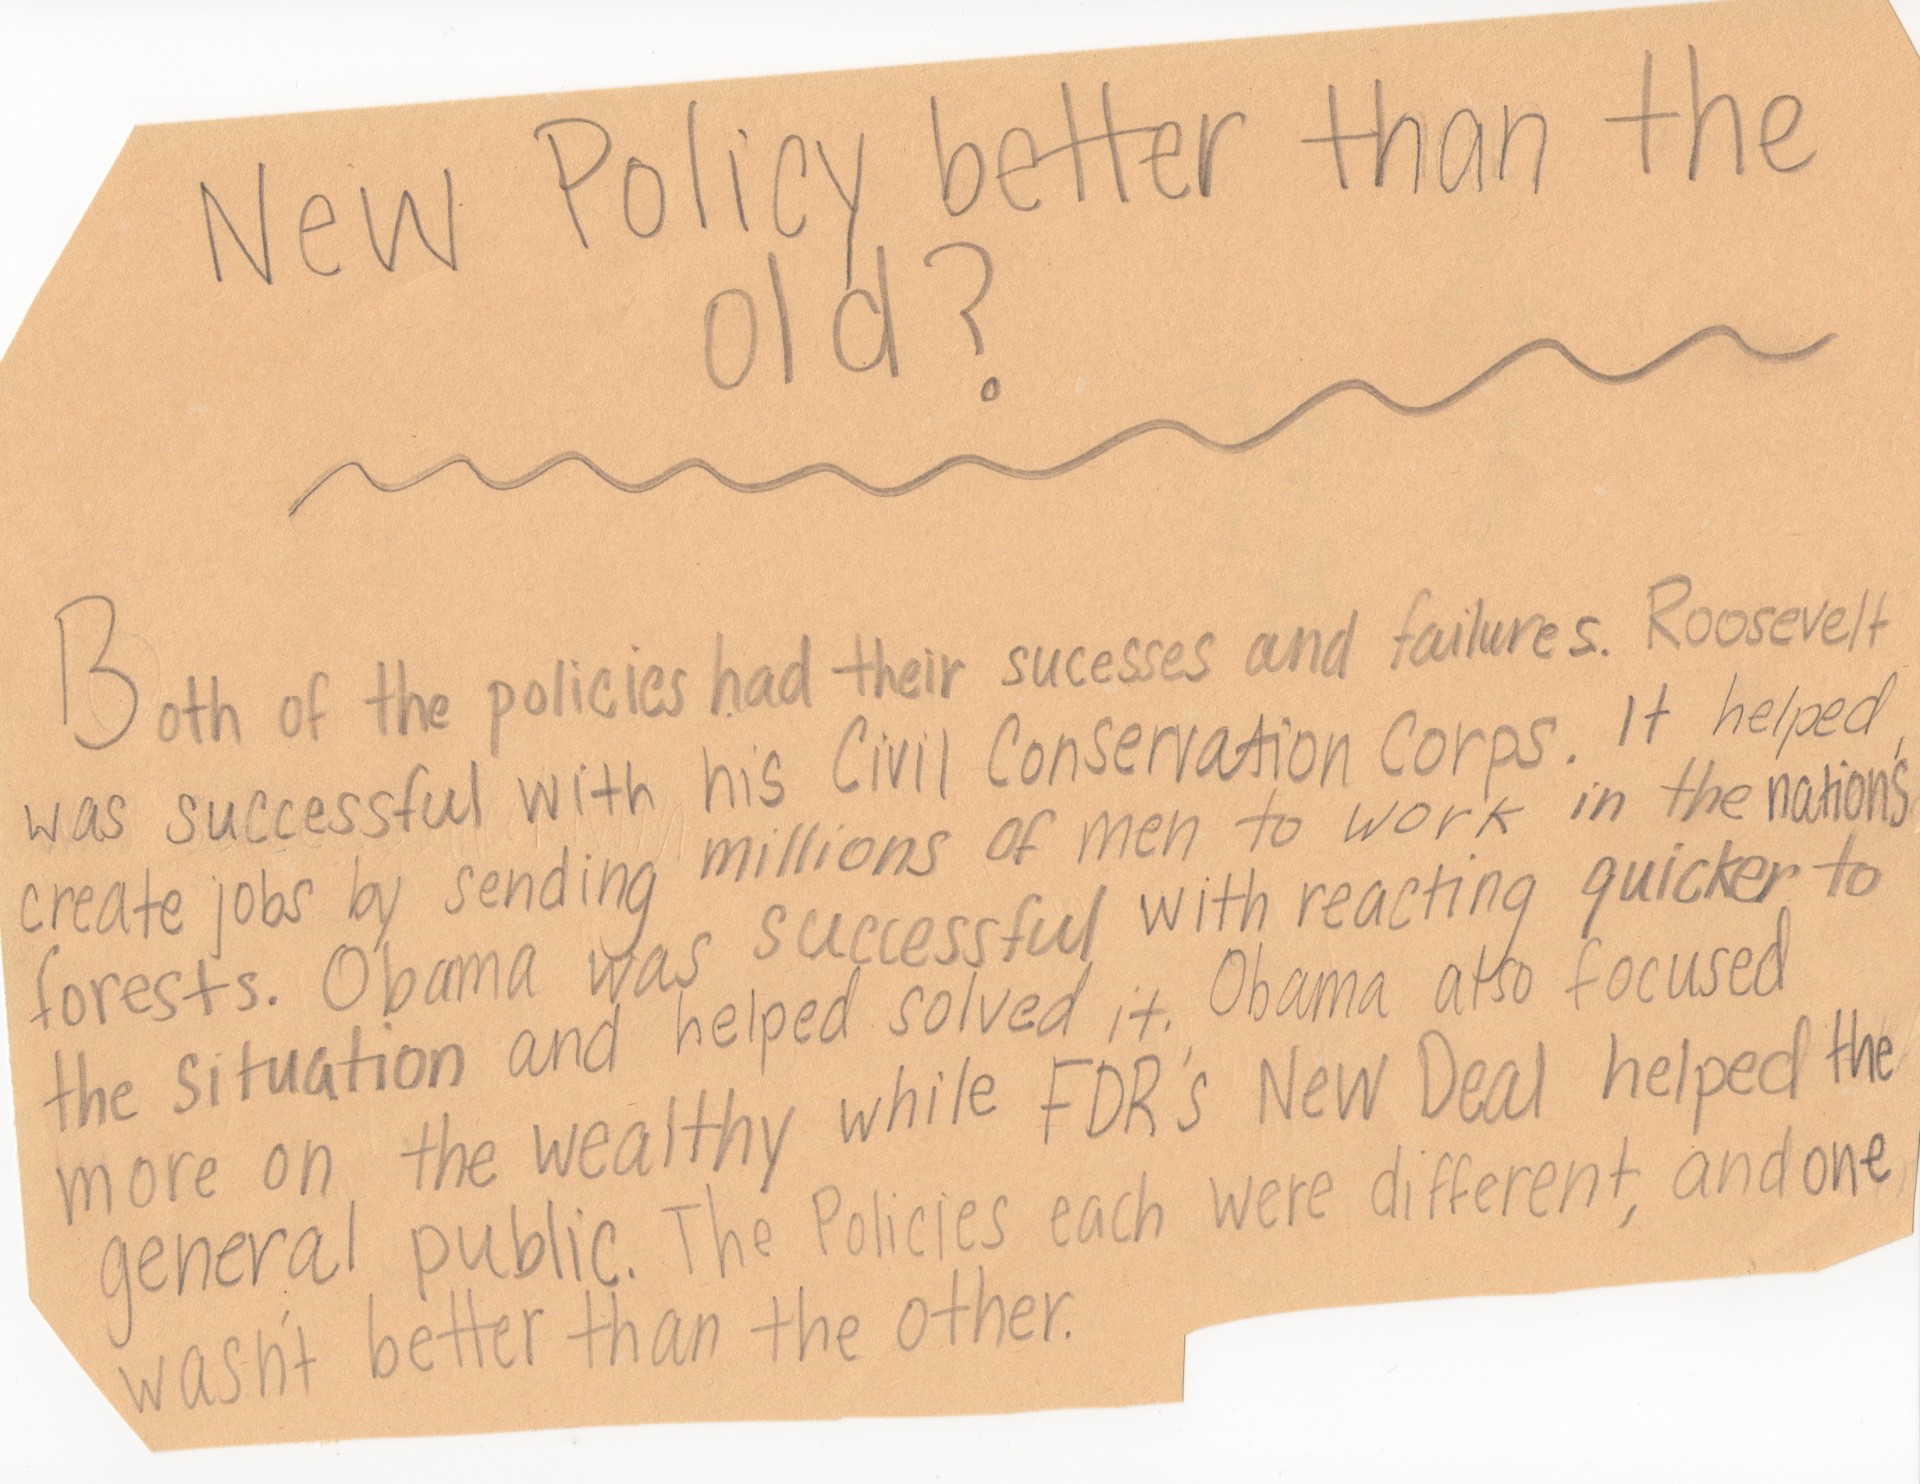 New Policy better than the
old?
Both of the policies had their sucesses and failures. Roosevelt
was successful with his Civil Conservation Corps. It helped
create jobs by sending millions of men to work in the nation's
forests. Obama was successful with reacting quicker to
the situation and helped solved it. Obama also focused
more on the wealthy while FDR's New Deal helped the
general public. The Policies each were different, and one
wasn't better than the other.